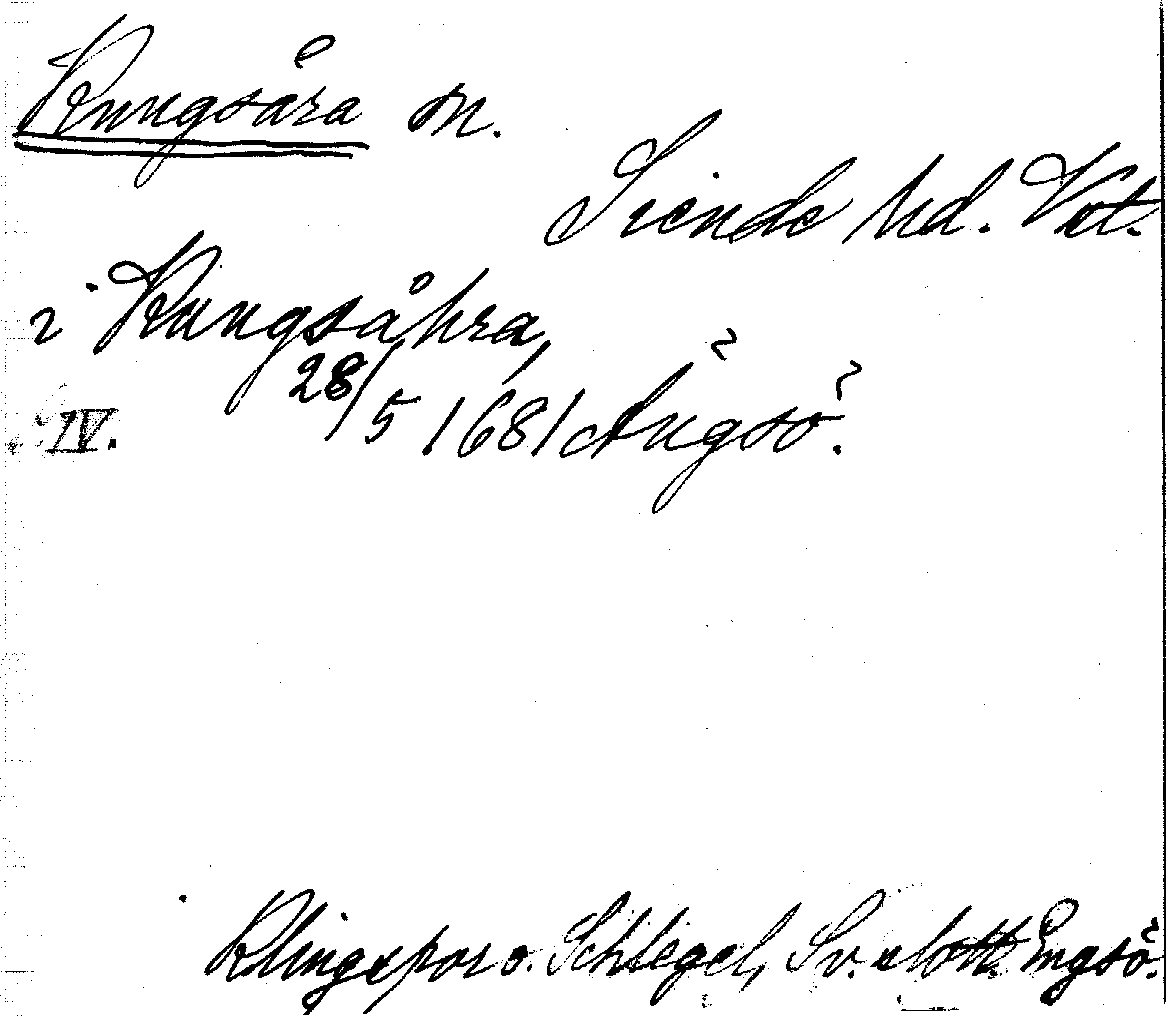 Kungsåra sn.
Siende hd. Vstm.
i Kungsåhra,
28/5 1681 Ängsö.
IV.
Klingspor o. Schlegel, Sv. slott. Engsö.